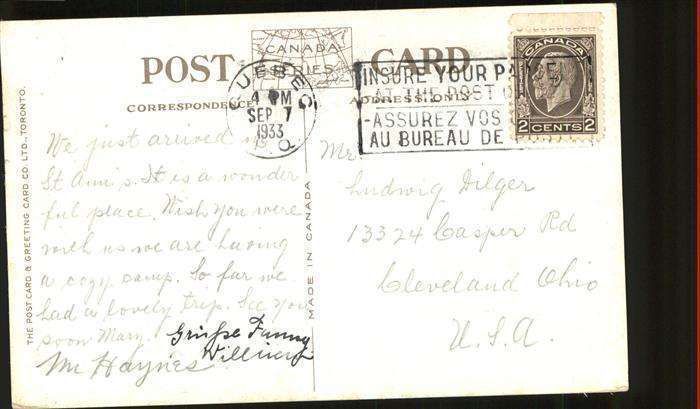 POST CARD
CANADA
SERIES
CORRESPONDENCE
ADDRESS ONLY
QUEBEC
4 PM
SEP 7
1933
P Q
INSURE YOUR PA
AT THE POST O
ASSUREZ VOS
AU BUREAU DE
CANADA
2 CENTS 2
THE POST CARD & GREETING CARD CO. LTD., TORONTO.
We just arrived in
St Ann's. It is a wonder
ful place. Wish you were
with us we are having
a cozy camp. So far we
had a lovely trip. See you
soon Mary.
Mr Haynes
Grüsse Fanny
MADE IN CANADA
Mr
Ludwig Dilger
13324 Casper Rd
Cleveland Ohio
U.S.A.